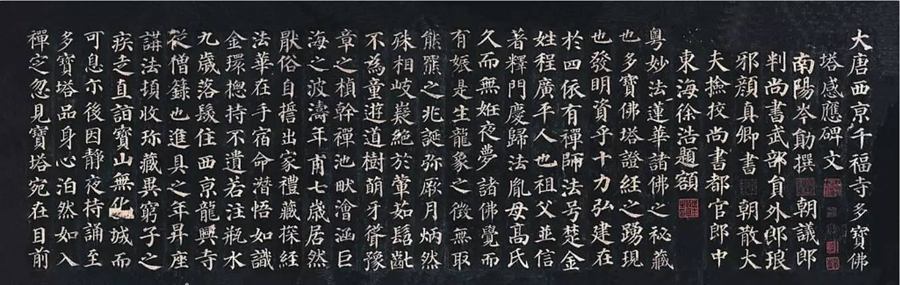 大唐西京千福寺多寶佛
塔感應碑文
南陽岑勛撰 朝議郎
判尚書武部員外郎琅
邪顏真卿書 朝散大
夫撿校尚書都官郎中
東海徐浩題額
粵妙法蓮華諸佛之秘藏
也多寶佛塔證經之踴現
也發明資乎十力弘建在
於四依有禪師法号楚金
姓程廣平人也祖父並信
著釋門慶歸法胤母高氏
久而無妊夜夢諸佛覺而
有娠是生龍象之徵無取
熊羆之兆誕弥厥月炳然
殊相岐嶷絕於葷茹髫齔
不為童遊道樹萌牙聳豫
章之楨幹禪池畎澮涵巨
海之波濤年甫七歲居然
猒俗自誓出家禮藏探經
法華在手宿命潛悟如識
金環揔持不遺若注瓶水
九歲落髮住西京龍興寺
從僧籙也進具之年昇座
講法頃收弥藏異窮子之
疾走直詣寶山無化城而
可息尔後因靜夜持誦至
多寶塔品身心泊然如入
禪㝎忽見寶塔宛在目前